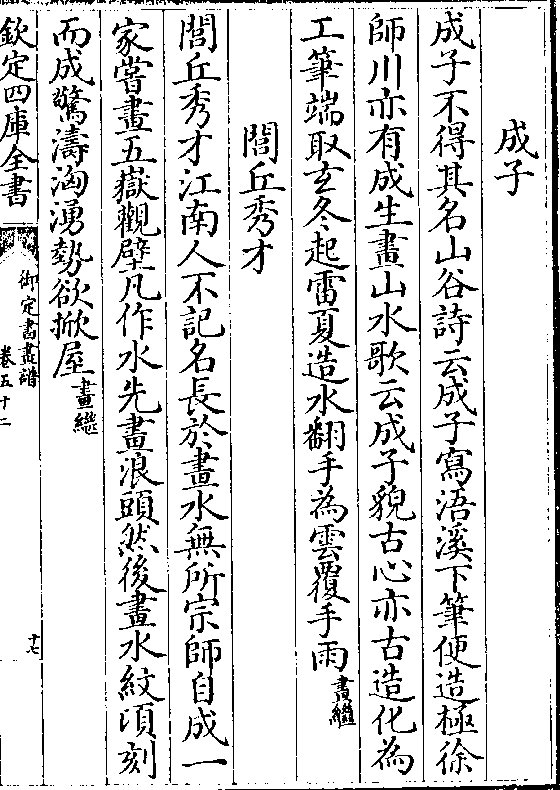 成子
成子不得其名山谷詩云成子寫浯溪下筆便造極徐
師川亦有成生畫山水歌云成子貌古心亦古造化為
工筆端取玄冬起雷夏造冰翻手為雲覆手雨畫繼
閭丘秀才
閭丘秀才江南人不記名長於畫水無所宗師自成一
家嘗畫五嶽觀壁凡作水先畫浪頭然後畫水紋頃刻
而成驚濤洶湧勢欲掀屋畫繼
欽定四庫全書
御定書畫譜
卷五十二
十七